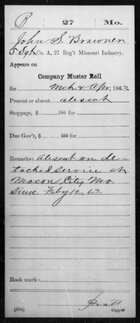 R 27 Mo.
John S. Browner
5 Sgt, Co. A, 27 Reg't Missouri Infantry.
Appears on
Company Muster Roll
for Mch & Apr, 1863.
Present or absent absent
Stoppage, $ 100 for
Due Gov't, $ 100 for
Remarks: absent on de
tached service at
Macon City Mo
Since Feby 12. 63.
Book mark:
(358)
Copyist.